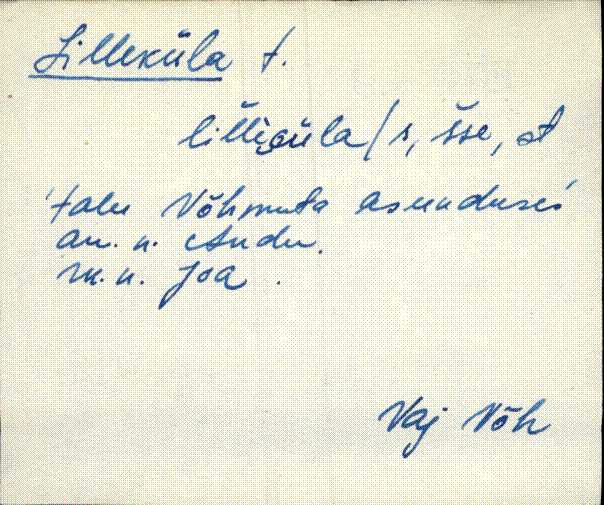 Lilleküla t.
lilliɢüla/s, šse, st
talu Võhmuta asunduses
an. n. Andu.
m. n. Joa.
Vaj Võh